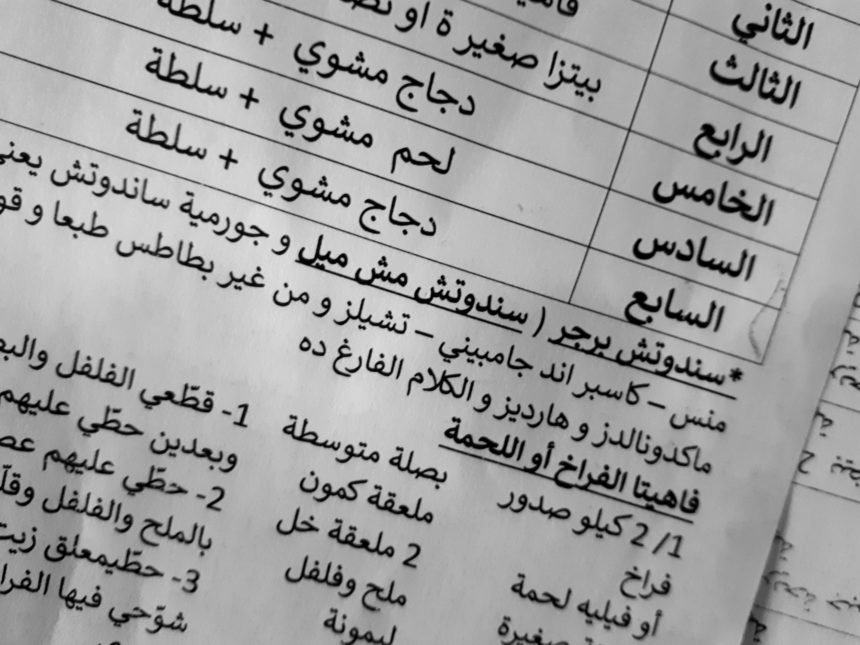 الثاني
الثالث بيتزا صغيرة أو
الرابع دجاج مشوي + سلطة
الخامس لحم مشوي + سلطة
السادس دجاج مشوي + سلطة
السابع
*سندوتش برجر ( سندوتش مش ميل و جورمية ساندوتش يعني
منس – كاسبر اند جامبيني – تشيلز و من غير بطاطس طبعا و
ماكدونالدز و هارديز و الكلام الفارغ ده
فاهيتا الفراخ أو اللحمة
1/ 2 كيلو صدور
فراخ
أو فيليه لحمة
صغيرة
بصلة متوسطة
ملعقة كمون
2 ملعقة خل
ملح وفلفل
ليمونة
1- قطّعي الفلفل
وبعدين حطّي عليهم
2- حطّي عليهم
بالملح والفلفل
3- حطّيمعلق
شوّحي فيها